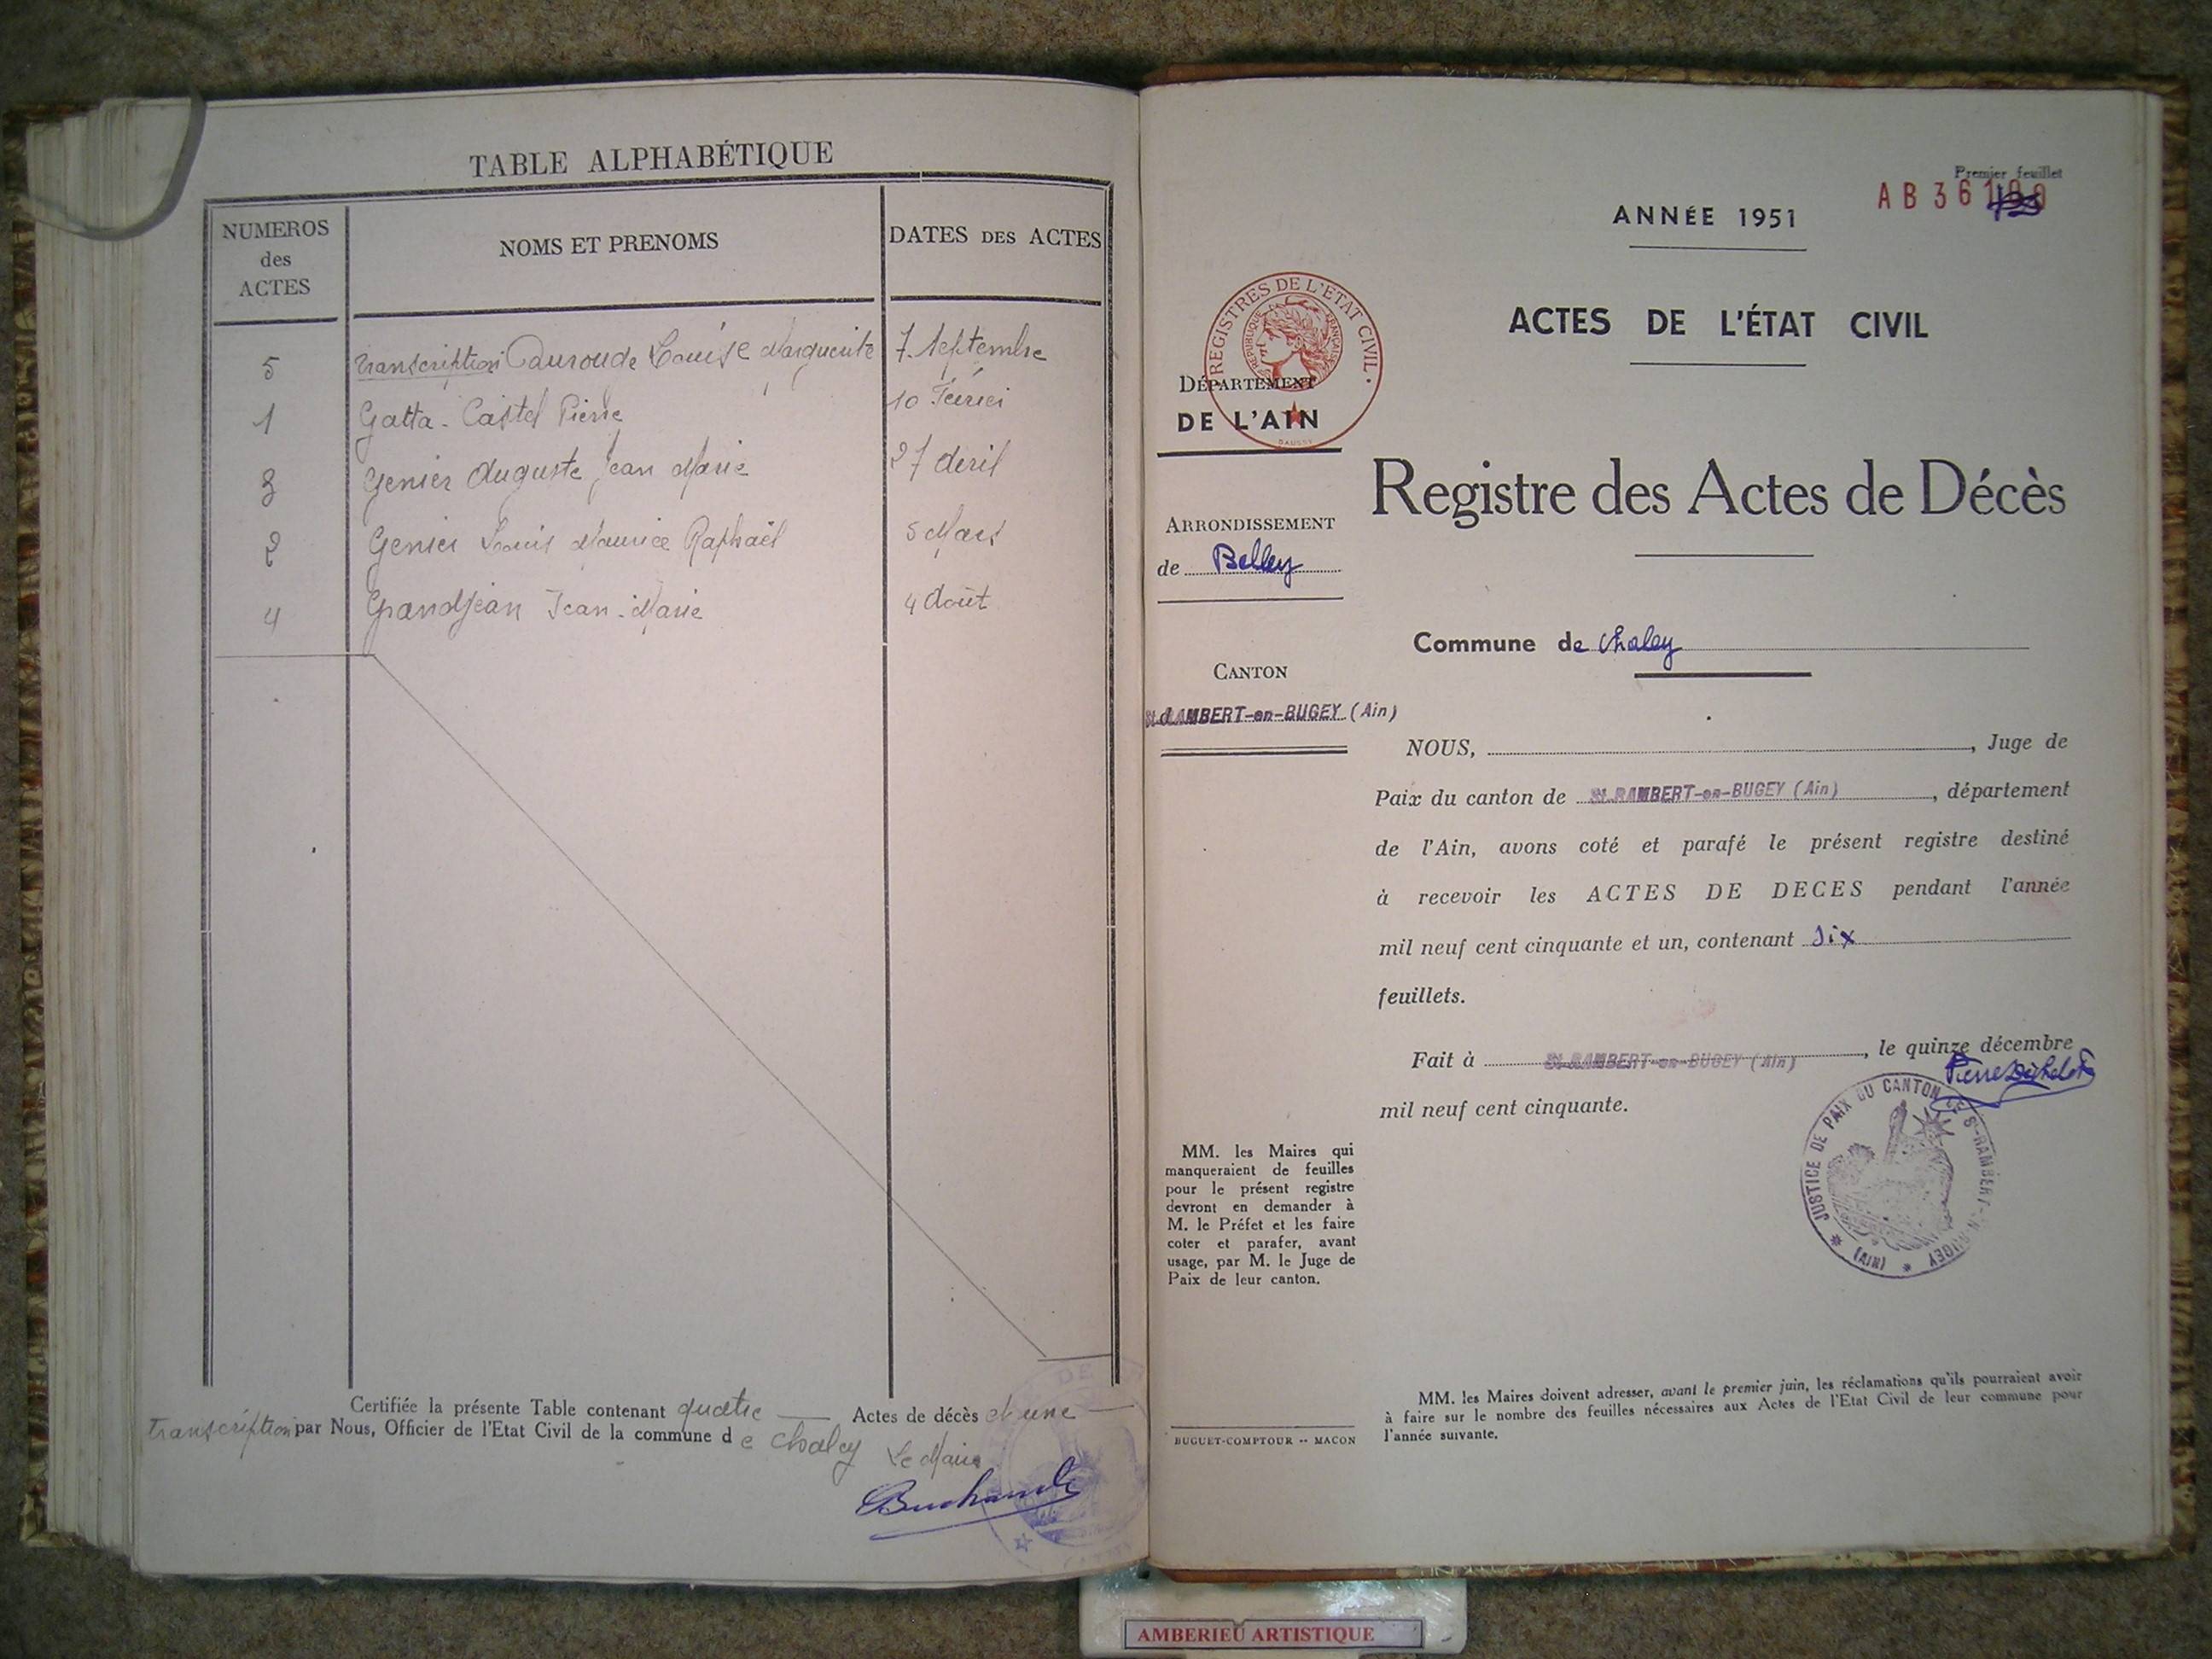 TABLE ALPHABÉTIQUE
NUMEROS des ACTES
NOMS ET PRENOMS
DATES DES ACTES
5 transcription Louise Marguerite 7 Septembre
1 Gatta-Castel Pierre 10 Février
3 Genier Auguste Jean Marie 27 Avril
2 Genier Louis Maurice Raphaël 5 Mars
4 Grandjean Jean-Marie 4 Août
Certifiée la présente Table contenant quatre Actes de décès et une
transcription par Nous, Officier de l'Etat Civil de la commune de Chaley
Le Maire
Premier feuillet
AB36
ANNÉE 1951
ACTES DE L'ÉTAT CIVIL
REGISTRES DE L'ETAT CIVIL
REPUBLIQUE FRANÇAISE
DÉPARTEMENT
DE L'AIN
Registre des Actes de Décès
ARRONDISSEMENT
de Belley
Commune de Chaley
CANTON
St-RAMBERT-en-BUGEY (Ain)
NOUS, , Juge de
Paix du canton de St-RAMBERT-en-BUGEY (Ain), département
de l'Ain, avons coté et parafé le présent registre destiné
à recevoir les ACTES DE DECES pendant l'année
mil neuf cent cinquante et un, contenant six
feuillets.
Fait à St-RAMBERT-en-BUGEY (Ain), le quinze décembre
mil neuf cent cinquante.
JUSTICE DE PAIX DU CANTON DE St-RAMBERT-EN-BUGEY (AIN)
MM. les Maires qui
manqueraient de feuilles
pour le présent registre
devront en demander à
M. le Préfet et les faire
coter et parafer, avant
usage, par M. le Juge de
Paix de leur canton.
MM. les Maires doivent adresser, avant le premier juin, les réclamations qu'ils pourraient avoir
à faire sur le nombre des feuilles nécessaires aux Actes de l'Etat Civil de leur commune pour
l'année suivante.
BUGUET-COMPTOUR -- MACON
AMBERIEU ARTISTIQUE